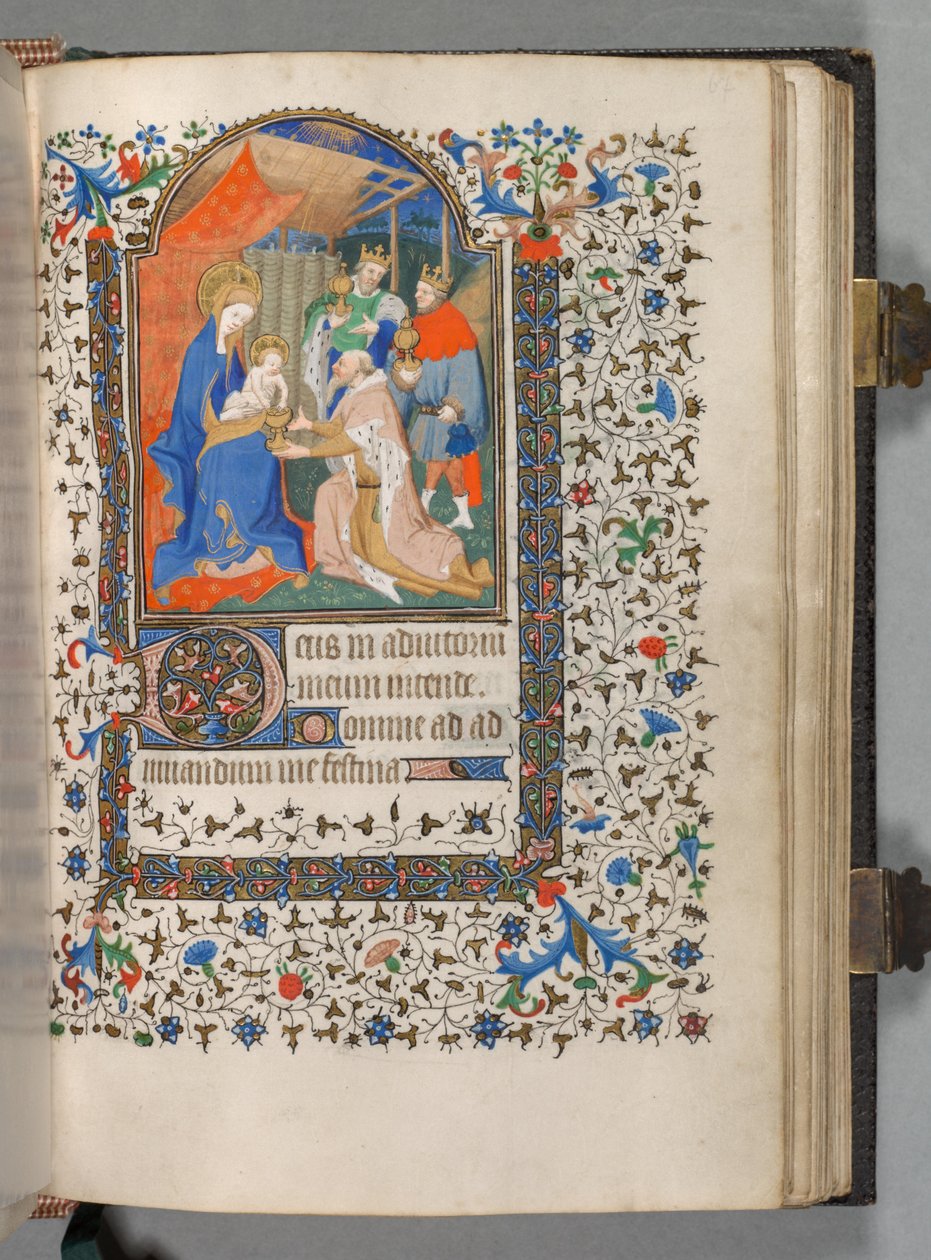 67
Deus in adiutoriu
meum intende.
Domine ad ad
iuuandum me festina